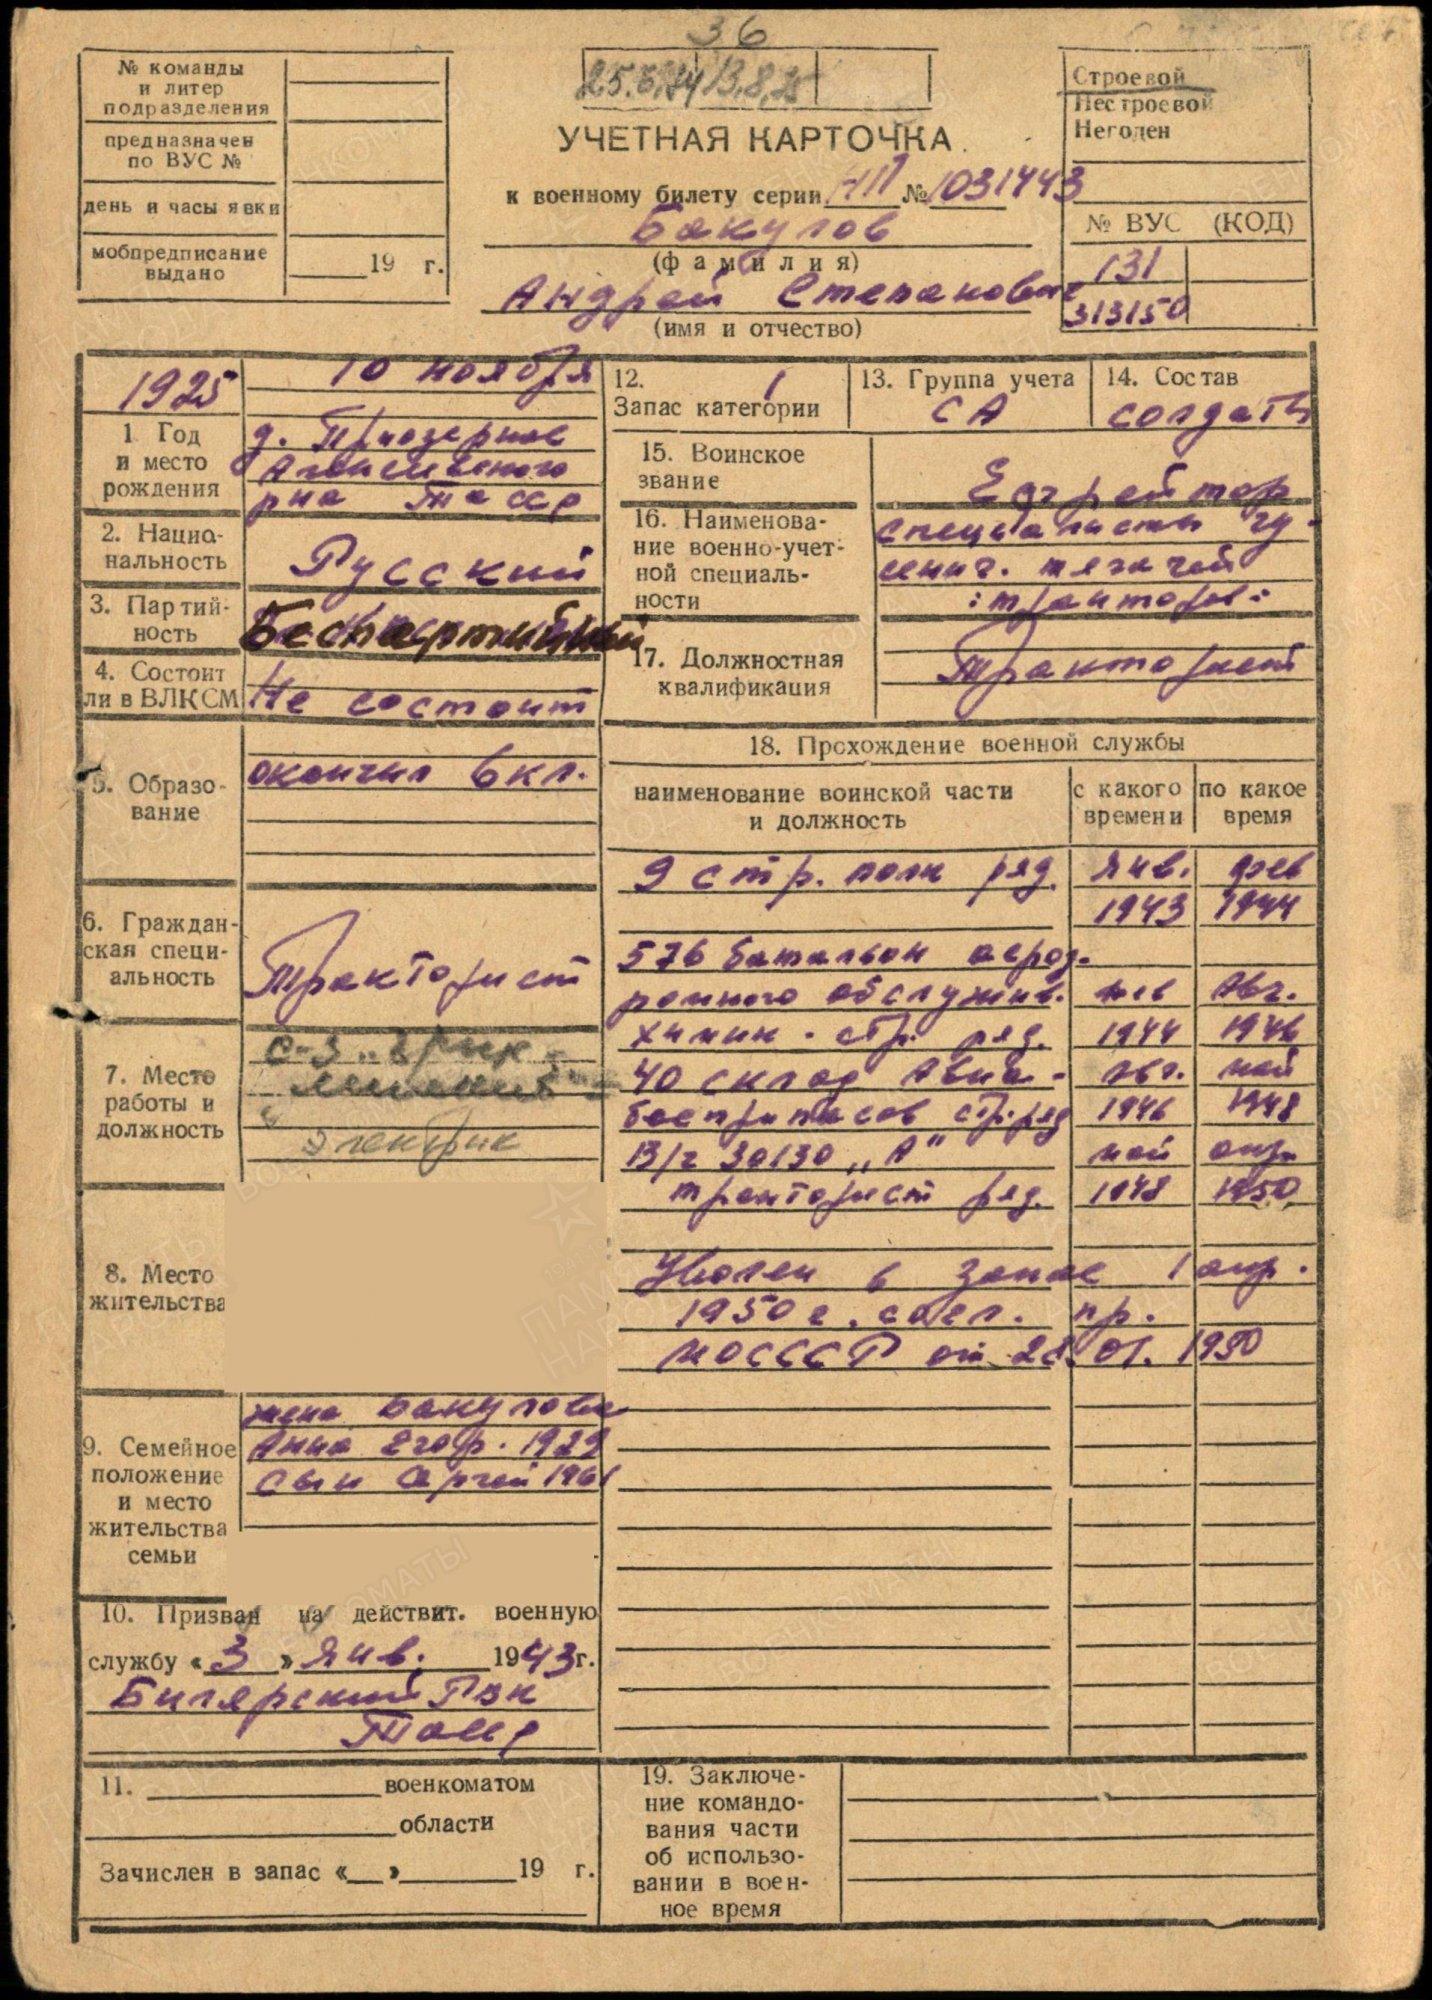 36
№ команды
и литер
подразделения
предназначен
по ВУС №
день и часы явки
мобпредписание
выдано
19 г.
25.6.74 13.8.75
УЧЕТНАЯ КАРТОЧКА
к военному билету серии НП № 1031443
Бакулов
(фамилия)
Андрей Степанович
(имя и отчество)
Строевой
Нестроевой
Негоден
№ ВУС (КОД)
131
313150
1925
10 ноября
1 Год
и место
рождения
д. Приозерное
Алексеевского
р-на ТАССР
2. Нацио-
нальность
Русский
3. Партий-
ность
Беспартийный
4. Состоит
ли в ВЛКСМ
Не состоит
5. Образо-
вание
окончил 6 кл.
6. Граждан-
ская специ-
альность
Тракторист
7. Место
работы и
должность
с-з
Электрик
8. Место
жительства
9. Семейное
положение
и место
жительства
семьи
жена Бакулова
Анна Егор. 1929
сын Сергей 1961
10. Призван на действит. военную
службу «3» Янв. 1943г.
Билярский РВК
11. военкоматом
области
Зачислен в запас « » 19 г.
12.
Запас категории
1
13. Группа учета
СА
14. Состав
солдаты
15. Воинское
звание
Ефрейтор
16. Наименова-
ние военно-учет-
ной специаль-
ности
специалисты гу-
сенич. тягачей
:тракторов:
17. Должностная
квалификация
Тракторист
18. Прохождение военной службы
наименование воинской части
и должность
с какого
времени
по какое
время
9 стр. полк ряд. Янв. фев
1943 1944
576 батальон аерод-
ромного обслужив. фев Авг.
химик - стр. ряд. 1944 1946
40 склад Авиа- авг. май
боеприпасов стр. ряд 1946 1948
В/ч 30130 „А" май апр.
тракторист ряд. 1948 1950
Уволен в запас 1 апр.
1950 г. согл. пр.
МО СССР от 28. 01. 1950
19. Заключе-
ние командо-
вания части
об использо-
вании в воен-
ное время